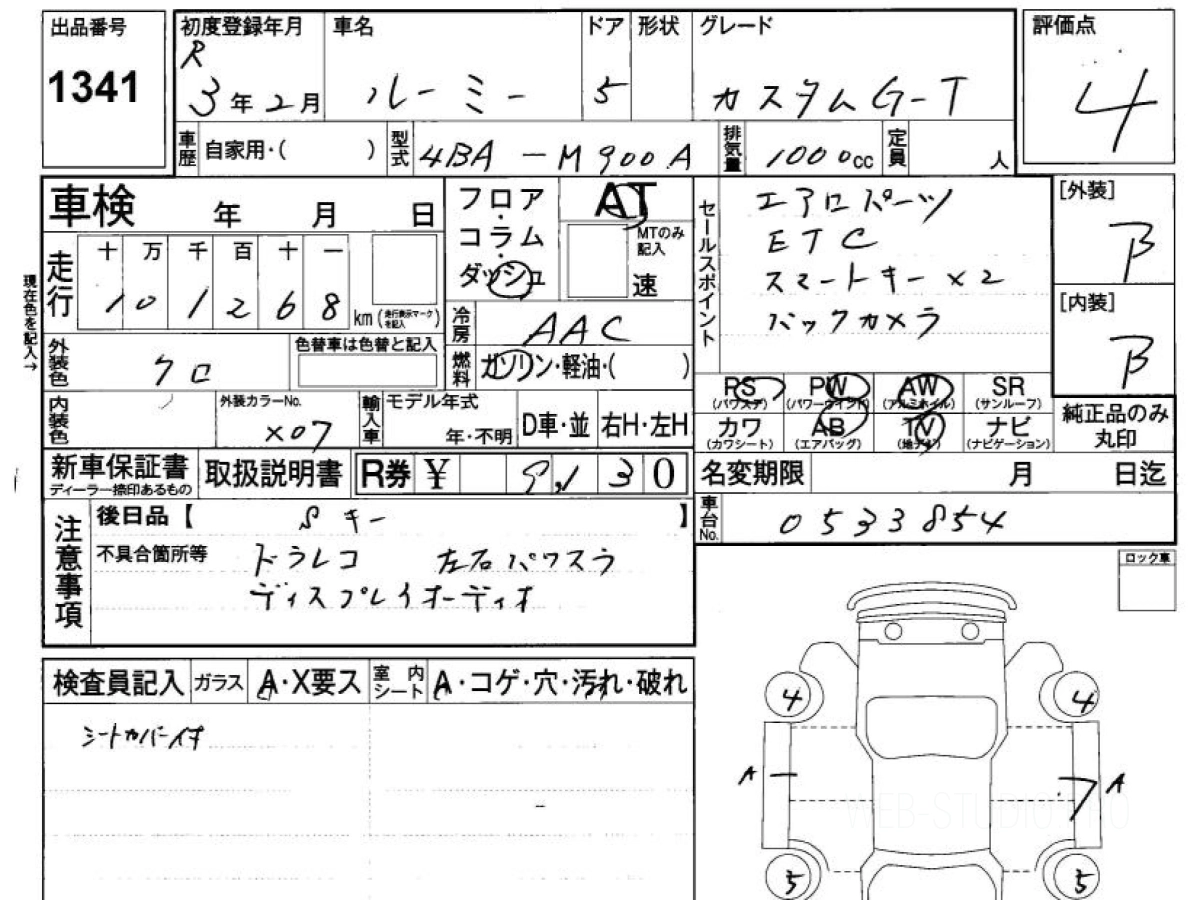 出品番号 1341
初度登録年月 R 3年2月
車名 ルーミー
ドア 5
形状
グレード カスタムG-T
評価点 4
車歴 自家用・( )
型式 4BA-M900A
排気量 1000cc
定員 人
車検 年 月 日
現在色を記入→
走行 十 万 千 百 十 一
101268 km (走行表示マークを記入)
フロア・コラム・ダッシュ
AT
MTのみ記入 速
冷房 AAC
燃料 ガソリン・軽油・( )
外装色 クロ
色替車は色替と記入
内装色
外装カラーNo. X07
輸入車
モデル年式 年・不明
D車・並
右H・左H
セールスポイント
エアロパーツ
ETC
スマートキー×2
バックカメラ
PS (パワステ) PW (パワーウインド) AW (アルミホイル) SR (サンルーフ)
カワ (カワシート) AB (エアバッグ) TV (地デジ) ナビ (ナビゲーション)
[外装] B
[内装] B
純正品のみ丸印
新車保証書 ディーラー捺印あるもの
取扱説明書
R券 ¥ 9,130
名変期限 月 日迄
車台No. 0533854
注意事項
後日品【 Sキー 】
不具合箇所等 ドラレコ 左右パワスラ
ディスプレイオーディオ
ロック車
検査員記入
ガラス A・X要ス
室内シート A・コゲ・穴・汚れ・破れ
シートカバー付
4 4
A A
WEB-STUDIO
5 5